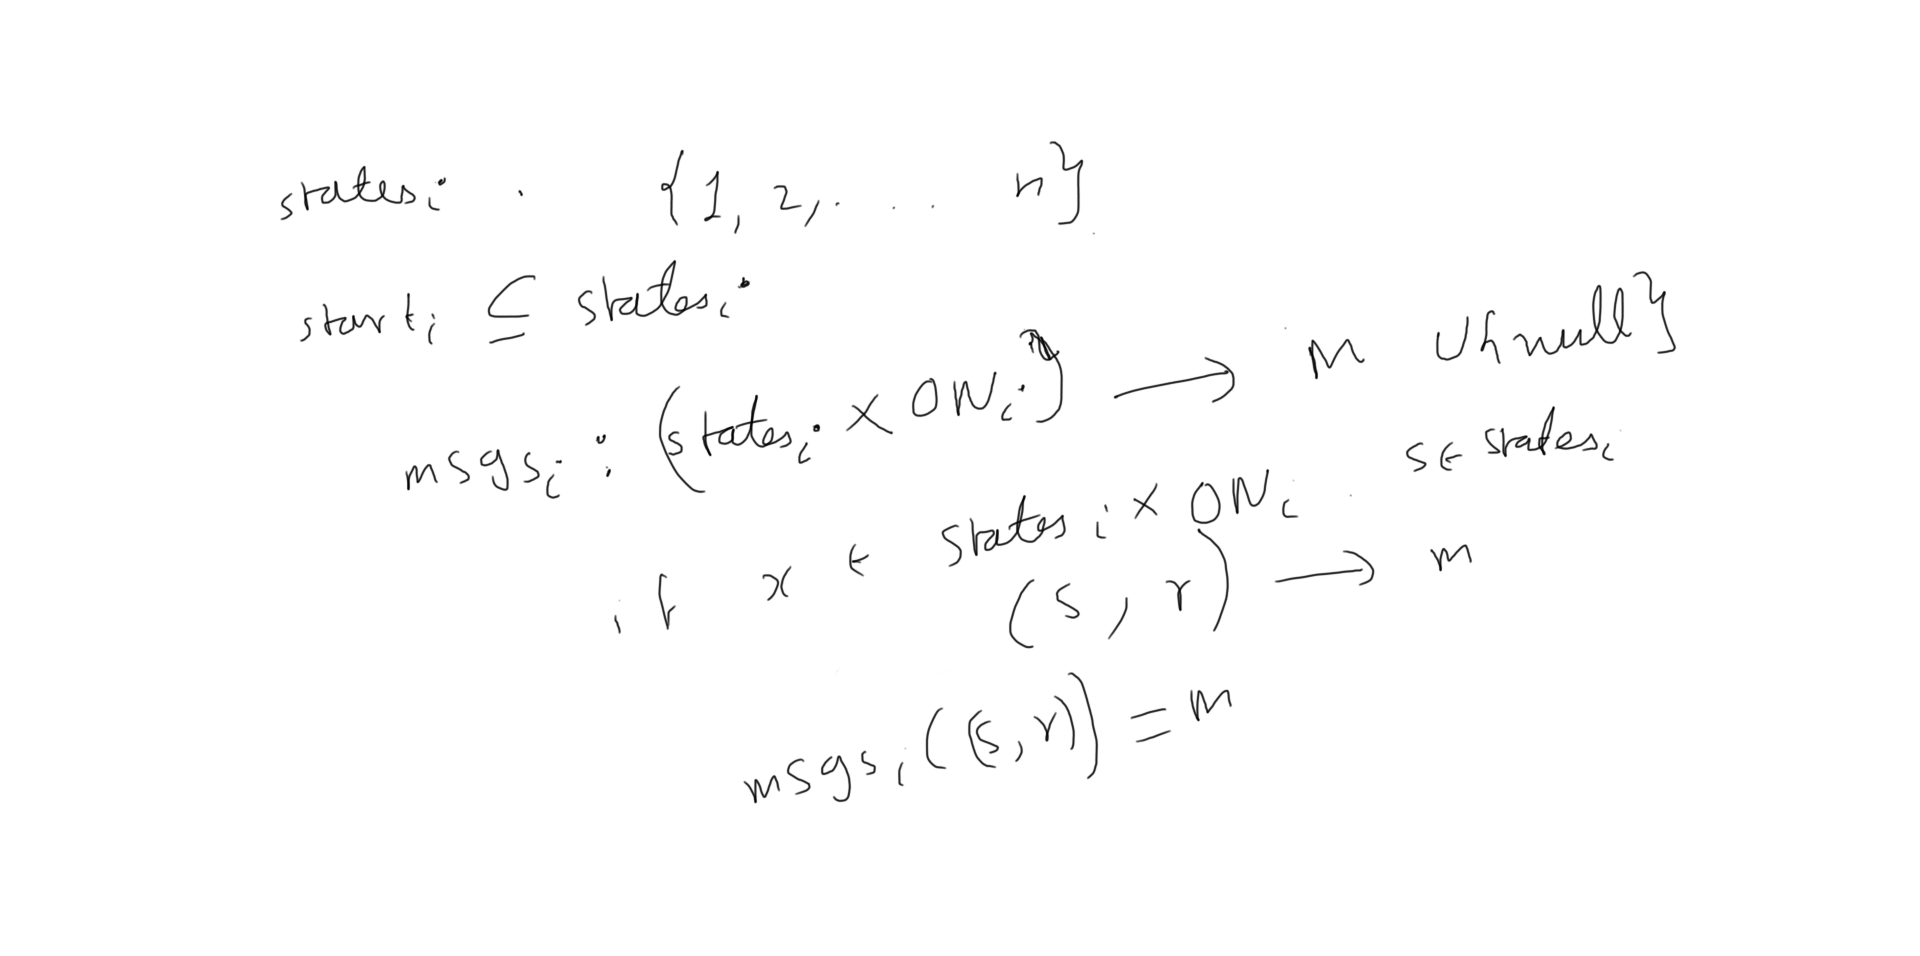 states_i . {1, 2, . . . n}
start_i ⊆ states_i
msgs_i : (states_i × ON_i) → M ∪ {null}
if x ∈ states_i × ON_i . s ∈ states_i
(s, r) → m
msgs_i((s, r)) = m